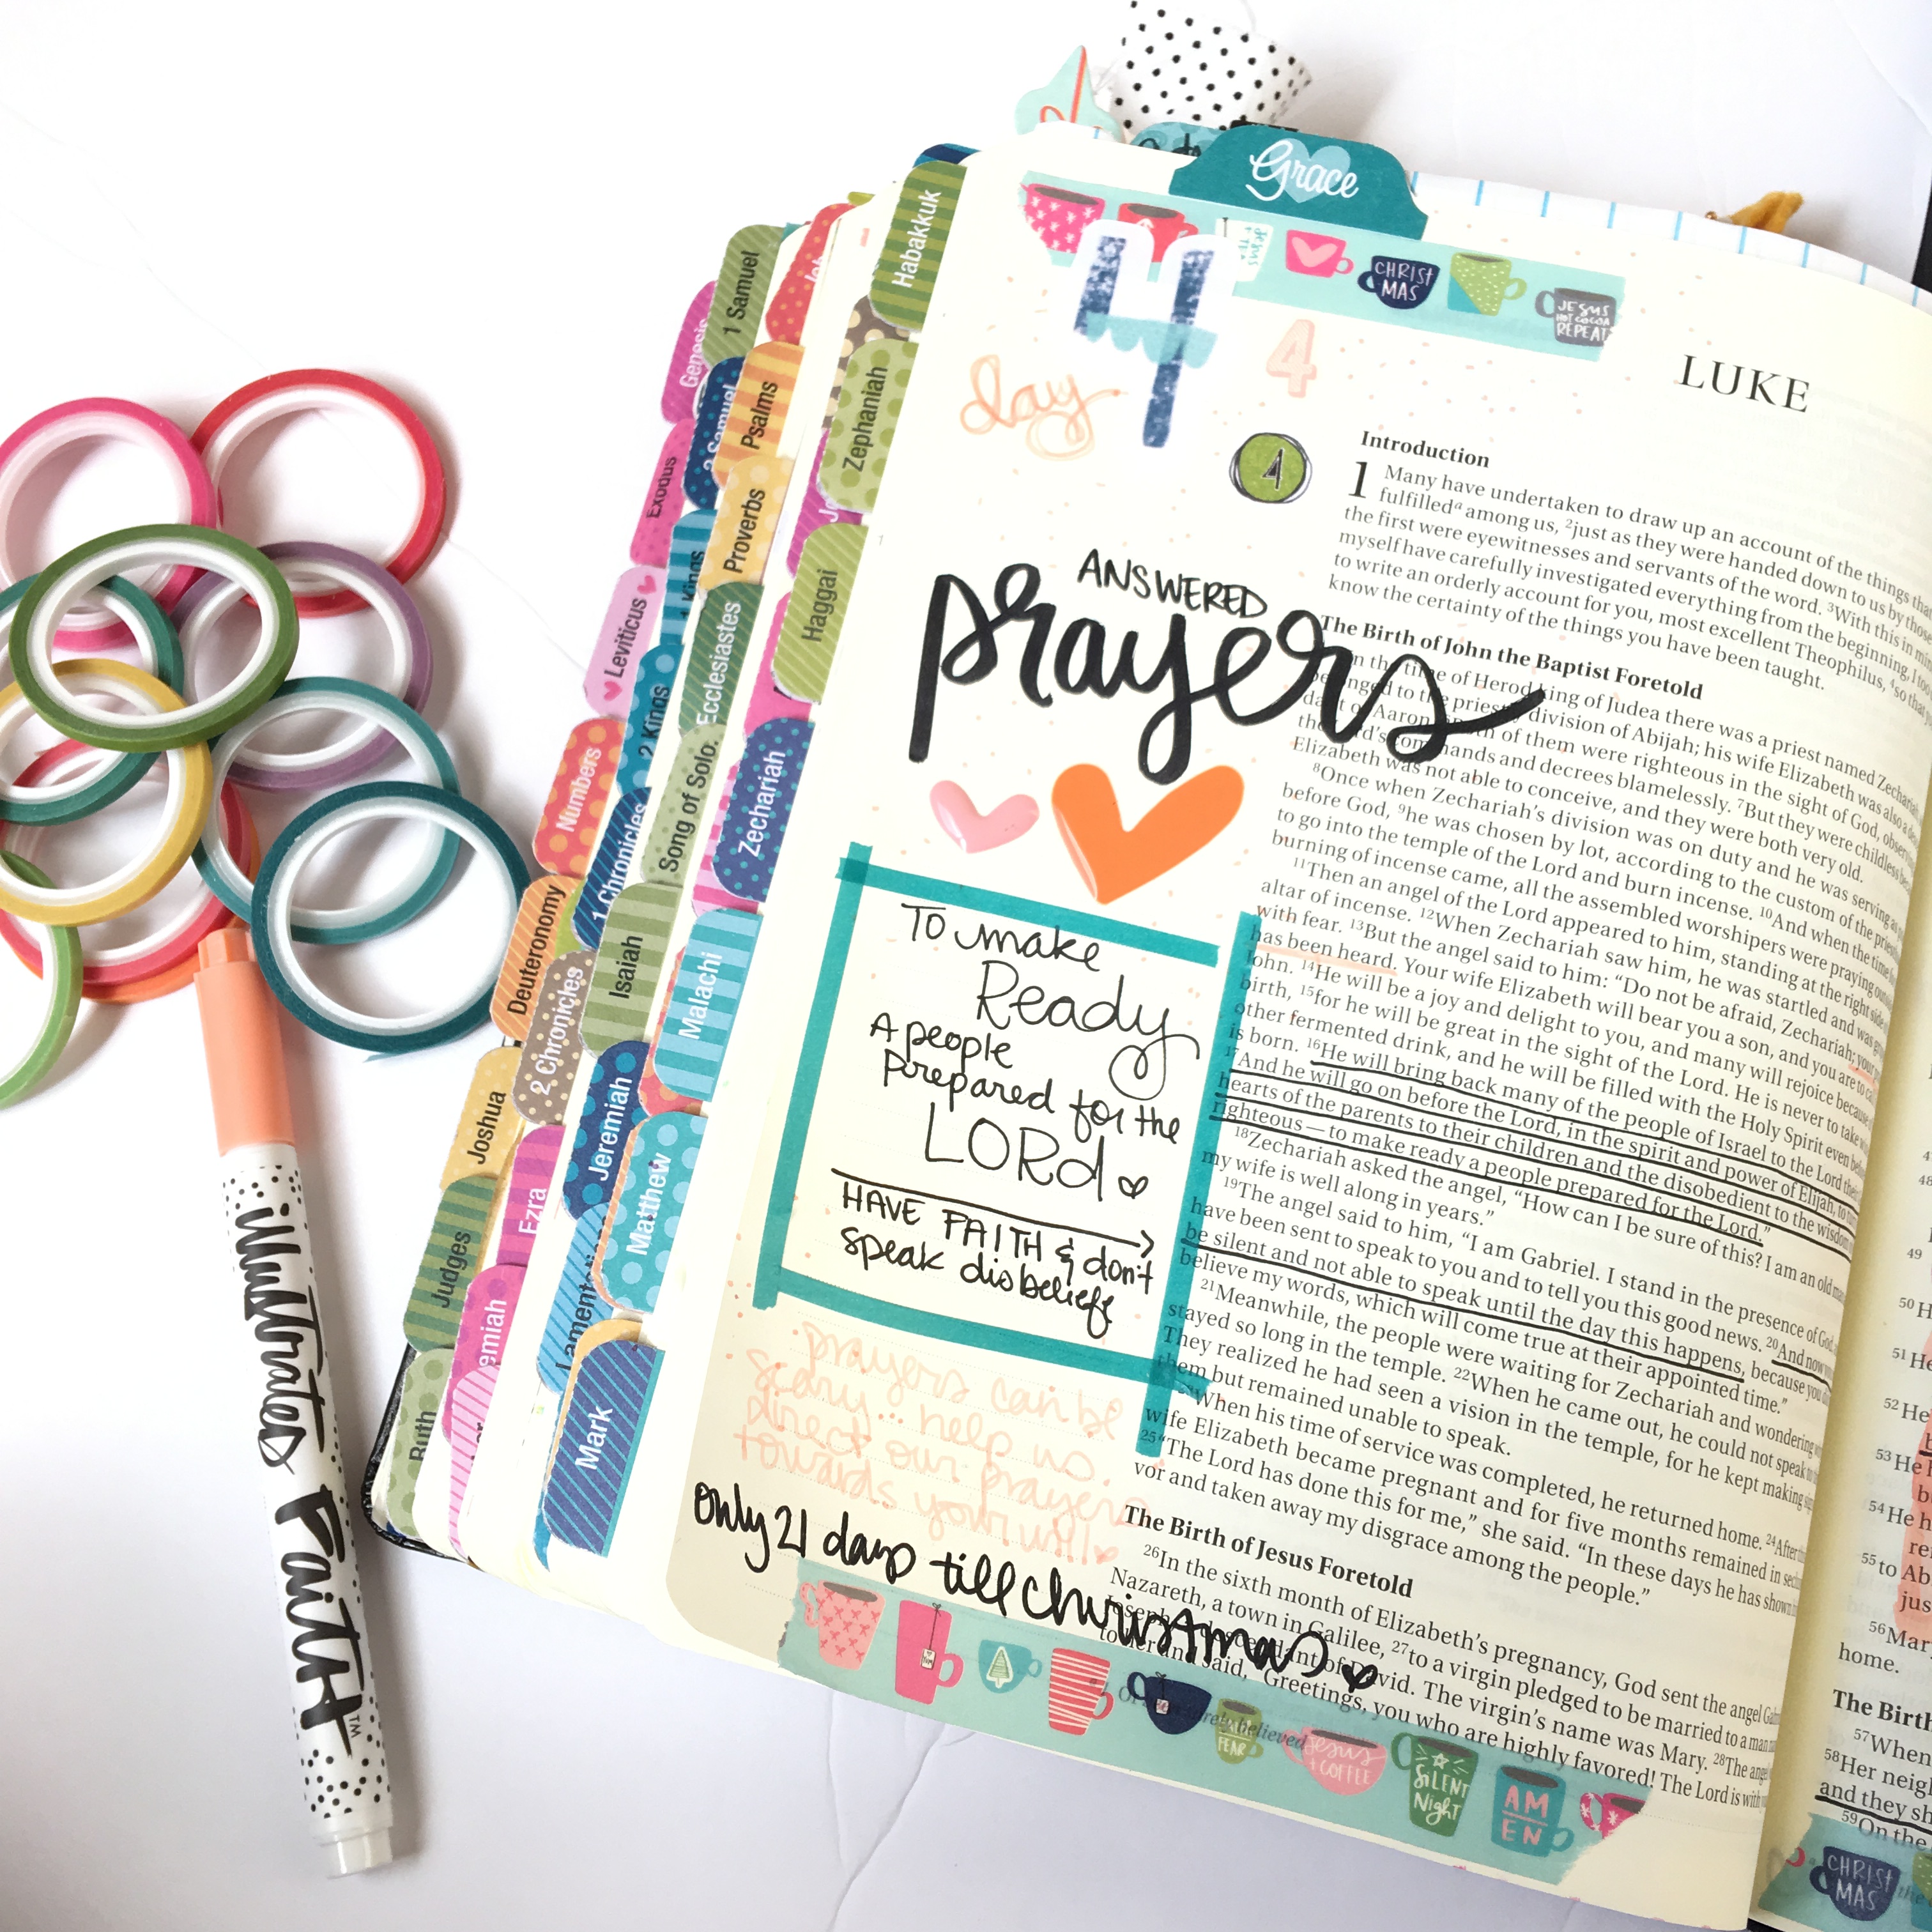 Grace
CHRIST
MAS
JESUS
HOT COCOA
REPEAT
day 4
4
4
ANSWERED
prayers
TO make
Ready
A people
Prepared for the
LORd
HAVE FAITH & don't
speak disbelief
prayers can be
scary... help us
direct our prayers
towards your will
only 21 days till christmas
FEAR
Jesus
& COFFEE
SILENT
Night
AM
EN
Genesis
Exodus
Leviticus
Numbers
Deuteronomy
Joshua
Judges
Ruth
1 Samuel
2 Samuel
1 Kings
2 Kings
1 Chronicles
2 Chronicles
Ezra
emiah
Psalms
Proverbs
Ecclesiastes
Song of Solo.
Isaiah
Jeremiah
Lament
Habakkuk
Zephaniah
Haggai
Zechariah
Malachi
Matthew
Mark
illustrated FAITH™
LUKE
Introduction
1 Many have undertaken to draw up an account of the things that
fulfilled^a among us, 2just as they were handed down to us by those
the first were eyewitnesses and servants of the word. 3With this in mind
myself have carefully investigated everything from the beginning, I too
to write an orderly account for you, most excellent Theophilus, 4so that
know the certainty of the things you have been taught.
The Birth of John the Baptist Foretold
In the time of Herod king of Judea there was a priest named Zechariah
belonged to the priestly division of Abijah; his wife Elizabeth was also a
of Aaron. of them were righteous in the sight of God, observing
the commands and decrees blamelessly. 7But they were childless
Elizabeth was not able to conceive, and they were both very old.
8Once when Zechariah's division was on duty and he was serving
before God, 9he was chosen by lot, according to the custom of the
to go into the temple of the Lord and burn incense. 10And when the time
burning of incense came, all the assembled worshipers were praying
11Then an angel of the Lord appeared to him, standing at the right side
altar of incense. 12When Zechariah saw him, he was startled and was
with fear. 13But the angel said to him: "Do not be afraid, Zechariah; your
has been heard. Your wife Elizabeth will bear you a son, and you are to
John. 14He will be a joy and delight to you, and many will rejoice because
birth, 15for he will be great in the sight of the Lord. He is never to take
other fermented drink, and he will be filled with the Holy Spirit even
is born. 16He will bring back many of the people of Israel to the Lord their
17And he will go on before the Lord, in the spirit and power of Elijah, to
hearts of the parents to their children and the disobedient to the wisdom
righteous—to make ready a people prepared for the Lord."
18Zechariah asked the angel, "How can I be sure of this? I am an old
my wife is well along in years."
19The angel said to him, "I am Gabriel. I stand in the presence of God,
have been sent to speak to you and to tell you this good news. 20And now
be silent and not able to speak until the day this happens, because you
believe my words, which will come true at their appointed time."
21Meanwhile, the people were waiting for Zechariah and wondering
stayed so long in the temple. 22When he came out, he could not speak
They realized he had seen a vision in the temple, for he kept making
them but remained unable to speak.
23When his time of service was completed, he returned home. 24After
wife Elizabeth became pregnant and for five months remained in
25"The Lord has done this for me," she said. "In these days he has shown
vor and taken away my disgrace among the people."
The Birth of Jesus Foretold
26In the sixth month of Elizabeth's pregnancy, God sent the angel
Nazareth, a town in Galilee, 27to a virgin pledged to be married to a man
descendant of David. The virgin's name was Mary. 28The angel
to her and said, "Greetings, you who are highly favored! The Lord is with
believed
48
49
50
51 He
52 He
53 He
54 He
55 to Ab
56 Mar
home.
The Birth
57 When
58 Her neig
and they sh
59 On the
CHRIST
MAS